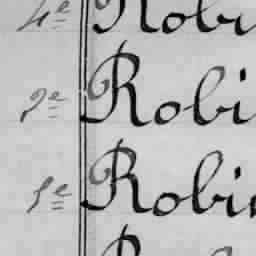 4e Robi
2e Robi
5e Robi